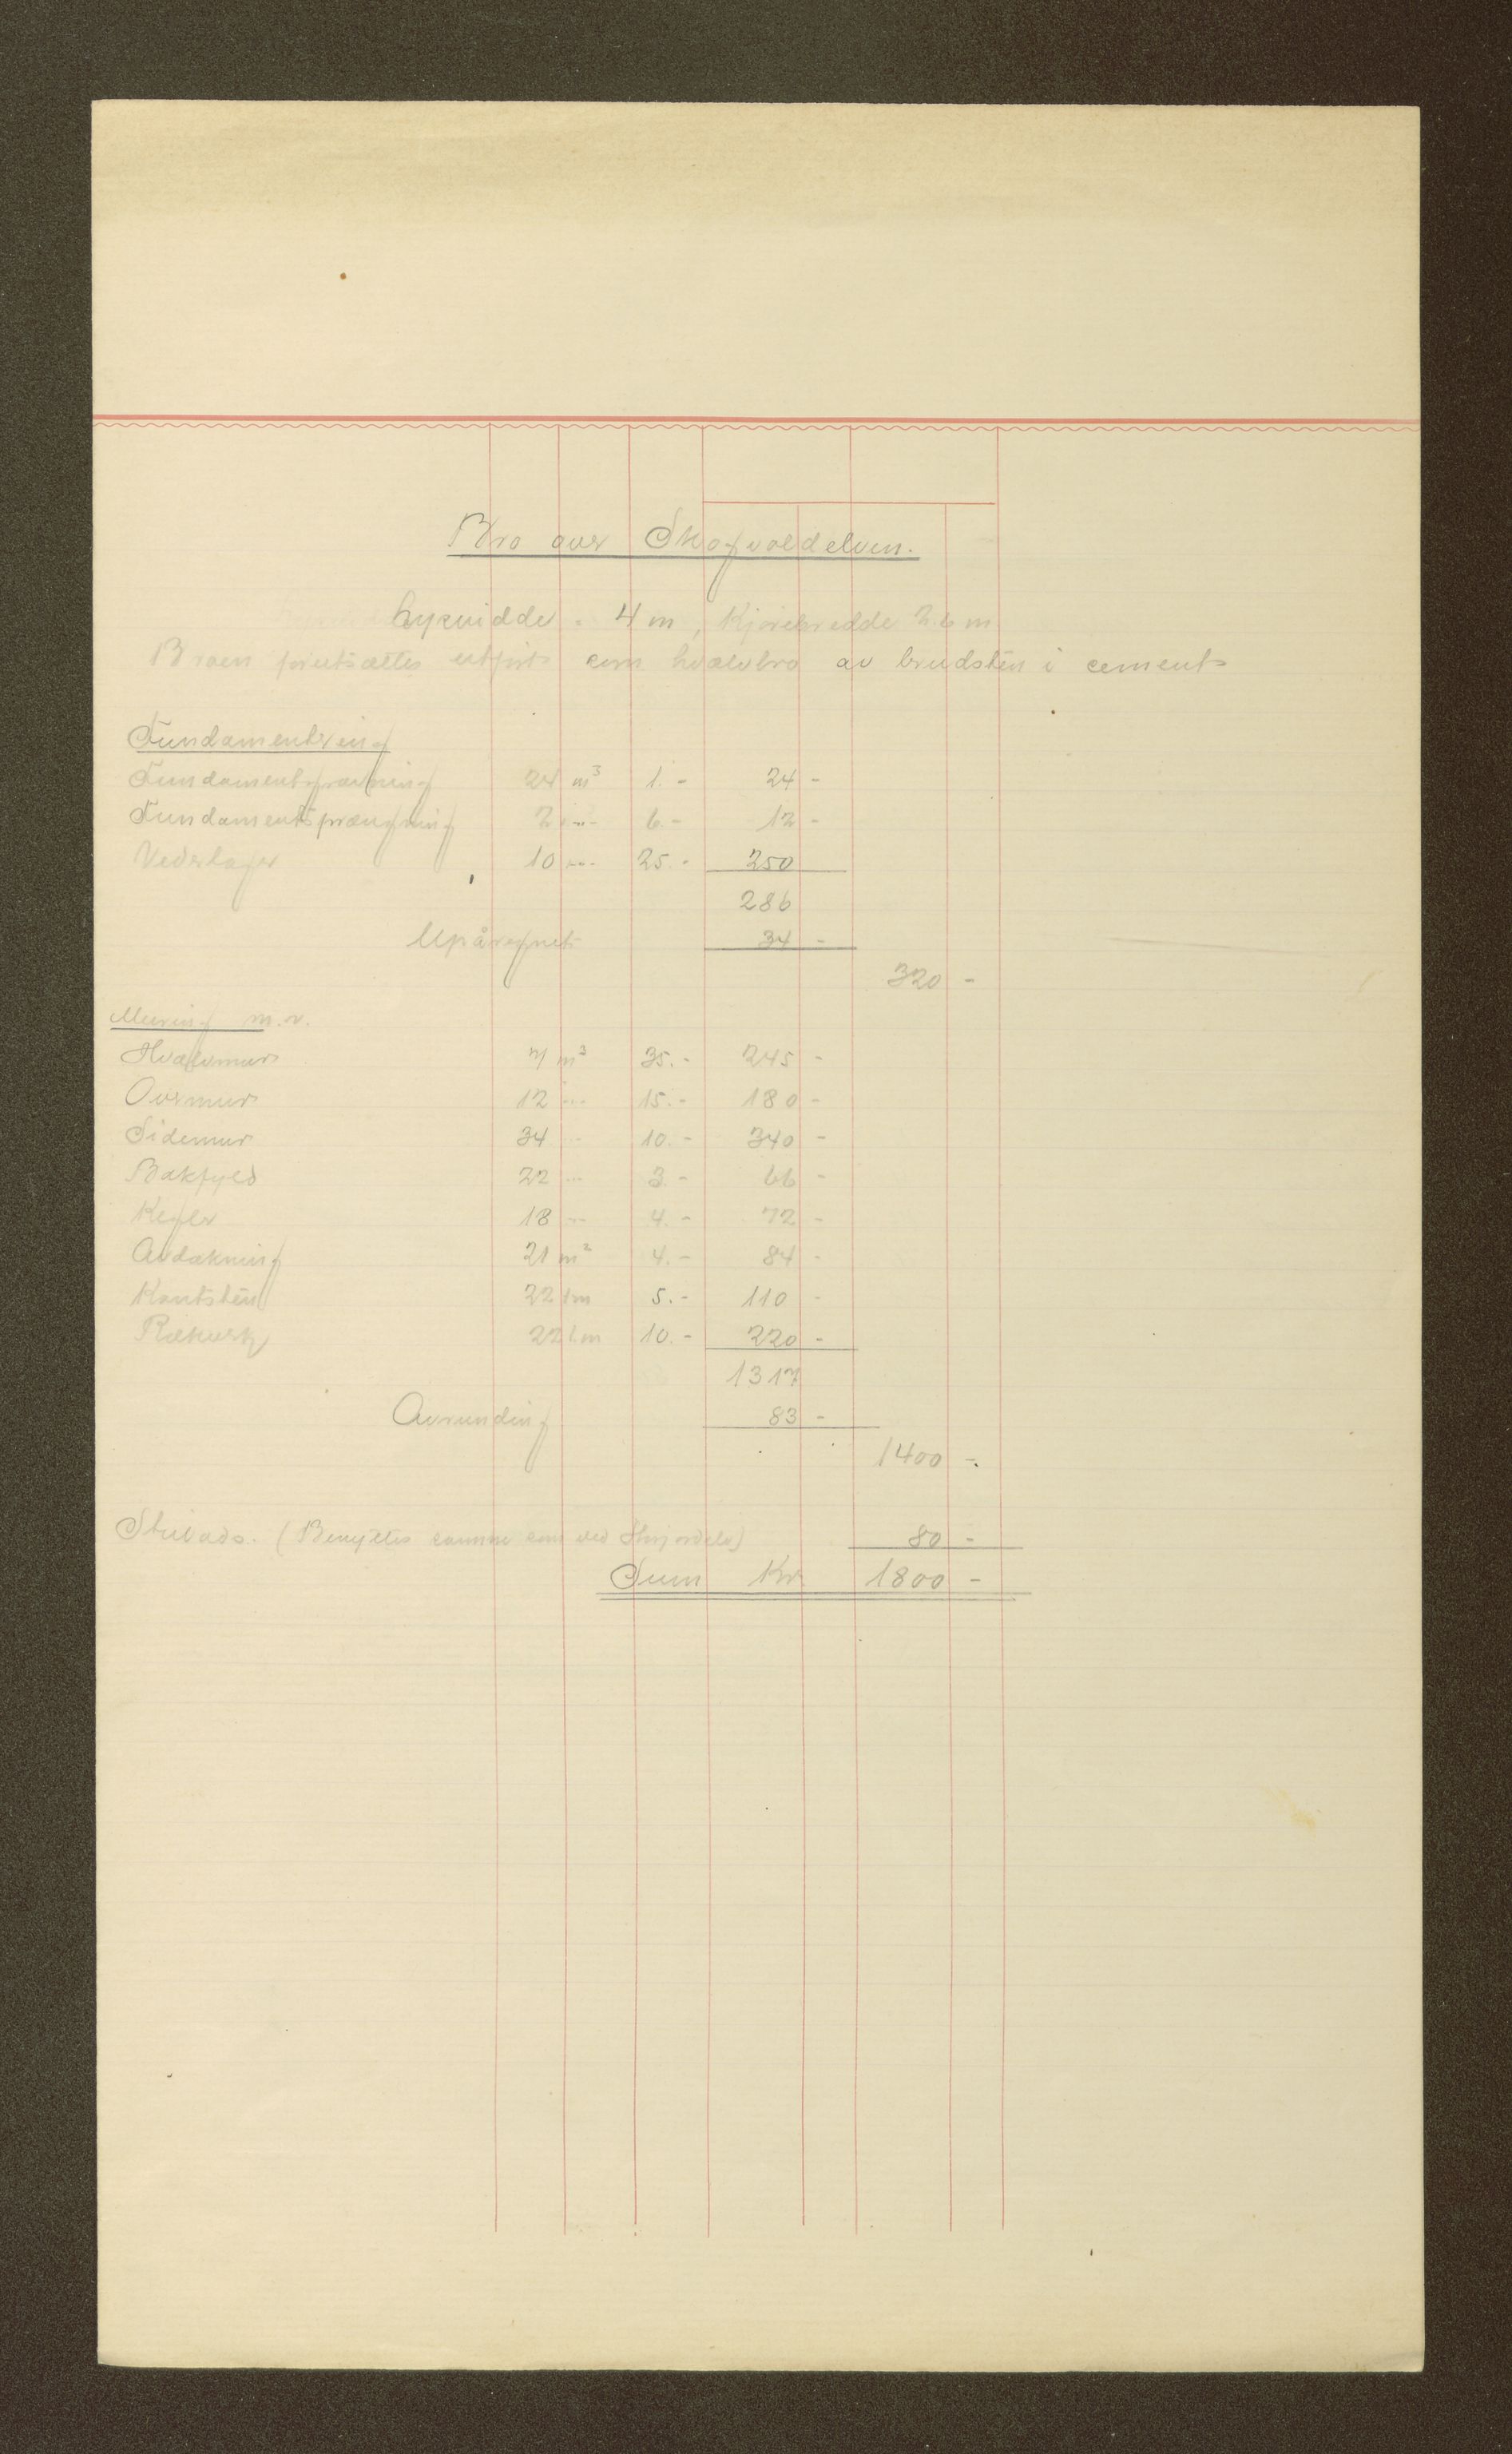 Bro over Skogvoldelven.
Lysvidde = 4 m, Kjørebredde 2.6 m
Broen forutsættes utført som hvælvbro av brudsten i cement
Fundamentering
Fundamentgravning 24 m³ 1.- 24 -
Fundamentsprængning 2 -"- 6.- 12 -
Vederlager 10 -"- 25.- 250
286
Upåregnet 34 -
320 -
Muring m.v.
Hvælvmur 7 m³ 35.- 245 -
Overmur 12 -"- 15.- 180 -
Sidemur 34 - 10.- 340 -
Bakfyld 22 -"- 3.- 66 -
Kegler 18 -"- 4.- 72 -
Avdækning 21 m² 4.- 84 -
Kantsten 22 lm 5.- 110 -
Rækverk 22 l.m 10.- 220 -
1317
Avrunding 83 -
1400 -.
Stilads. (Benyttes samme som ved 80 -
Sum Kr. 1800 -